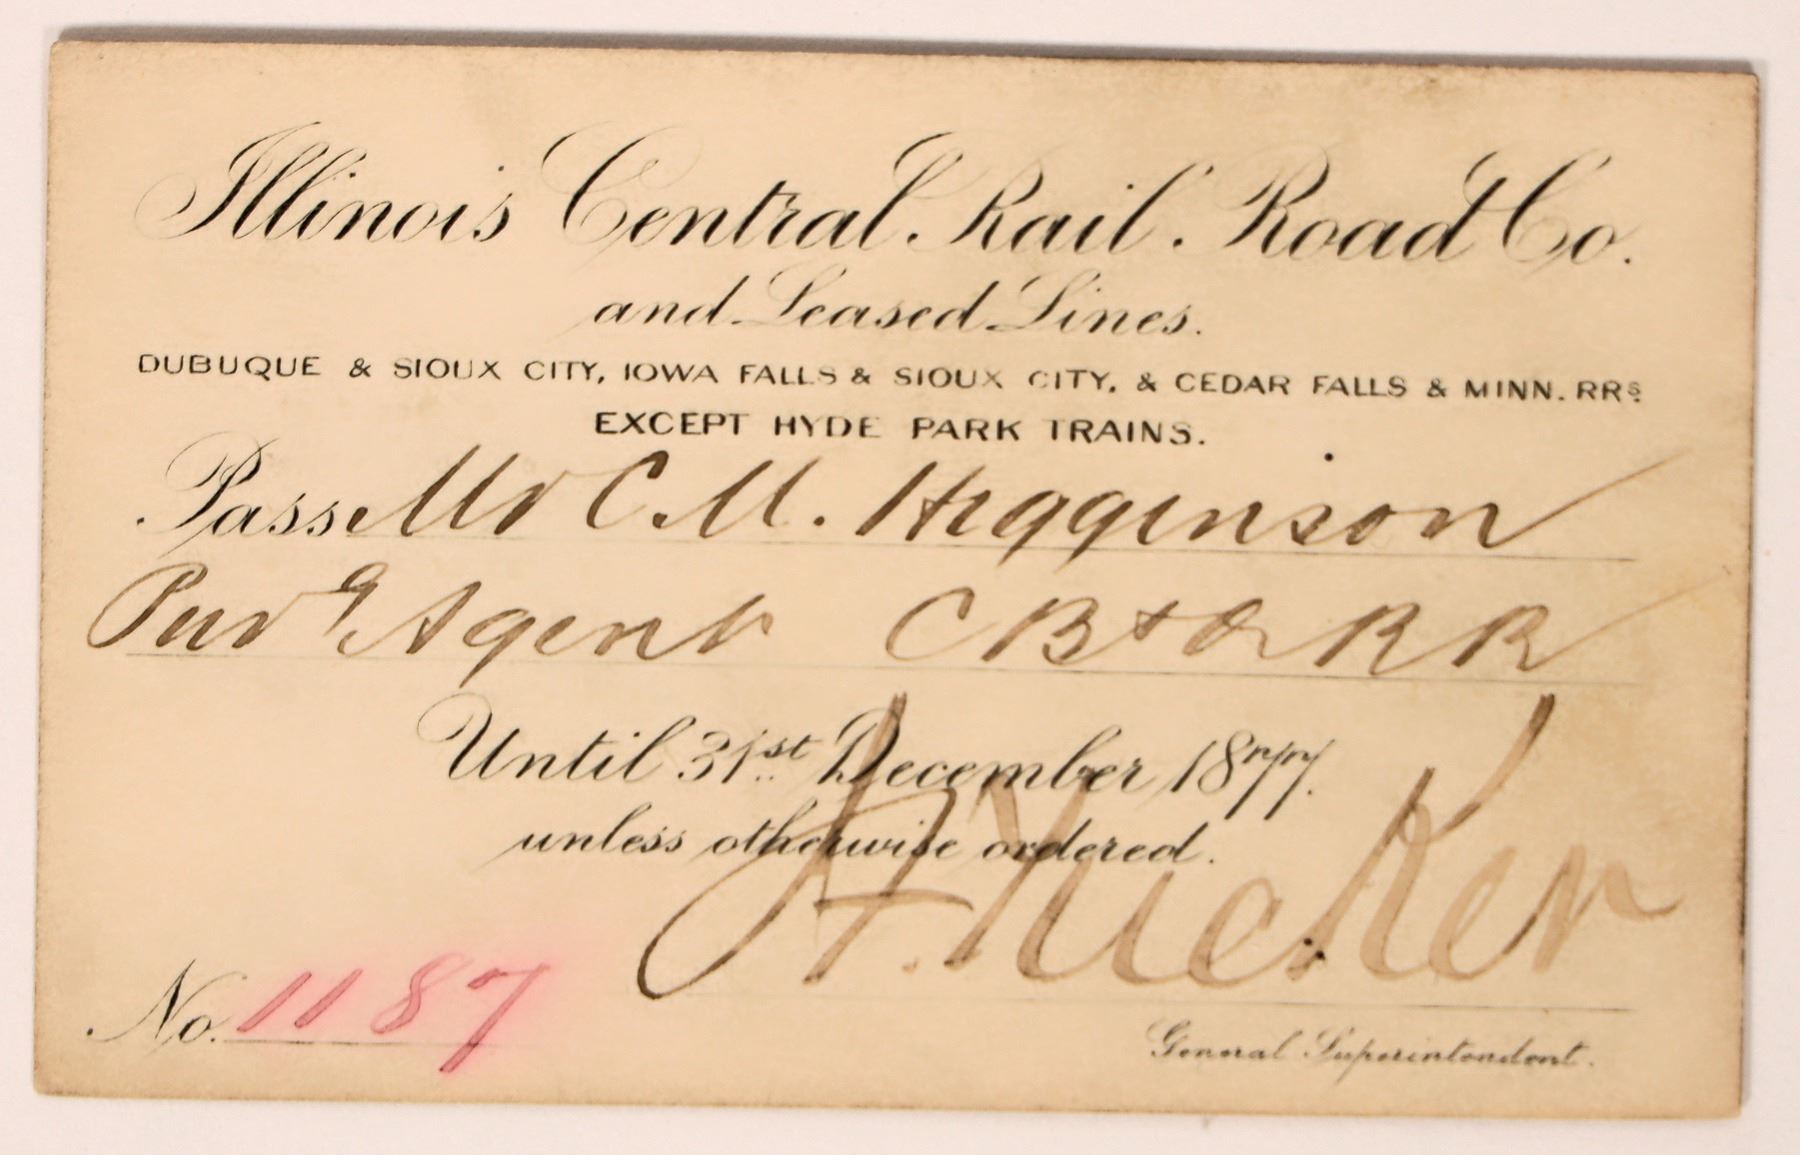 Illinois Central Rail Road Co.
and Leased Lines.
DUBUQUE & SIOUX CITY, IOWA FALLS & SIOUX CITY, & CEDAR FALLS & MINN. RRs.
EXCEPT HYDE PARK TRAINS.
Pass Mr C. M. Higginson
Purg Agent C B & Q R R
Until 31st December 1877.
unless otherwise ordered.
A. Tucker
No. 1187
General Superintendent.